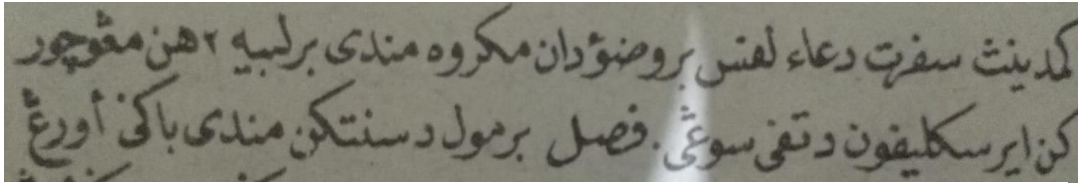 کمدينث سڤرت دعاء لڤس بروضوٴدان مکروه مندى برلبيه ٢هن مڠوچور
کن اير سکليڤون دتڤى سوڠى. فصل برمول دسنتکن مندى باکى أورڠ